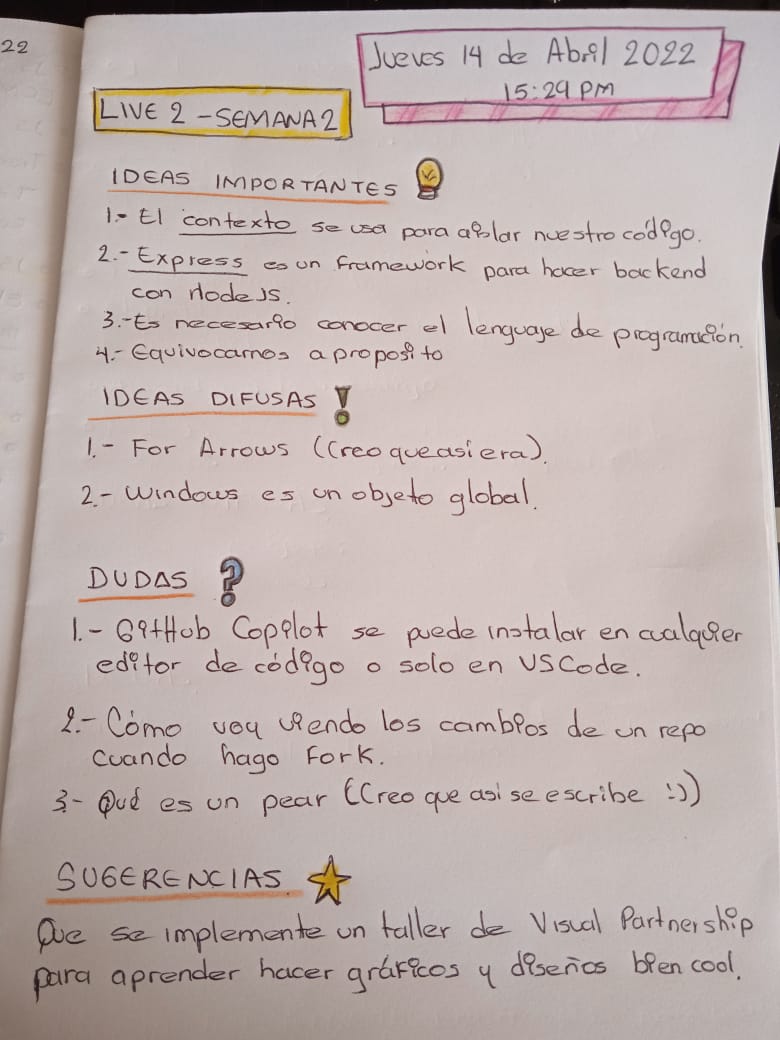 22
Jueves 14 de Abril 2022
15:29 PM
LIVE 2 - SEMANA 2
IDEAS IMPORTANTES
1.- El contexto se usa para aislar nuestro código.
2.- Express es un framework para hacer backend
con Node JS.
3.- Es necesario conocer el lenguaje de programación.
4.- Equivocarnos a proposito
IDEAS DIFUSAS !
1.- For Arrows ((Creo que asi era).
2.- Windows es un objeto global.
DUDAS ?
1.- GitHub Copilot se puede instalar en cualquier
editor de código o solo en VSCode.
2.- Cómo voy viendo los cambios de un repo
cuando hago Fork.
3.- Qué es un pear ((Creo que asi se escribe :))
SUGERENCIAS
Que se implemente un taller de Visual Partnership
para aprender hacer gráficos y diseños bien cool.